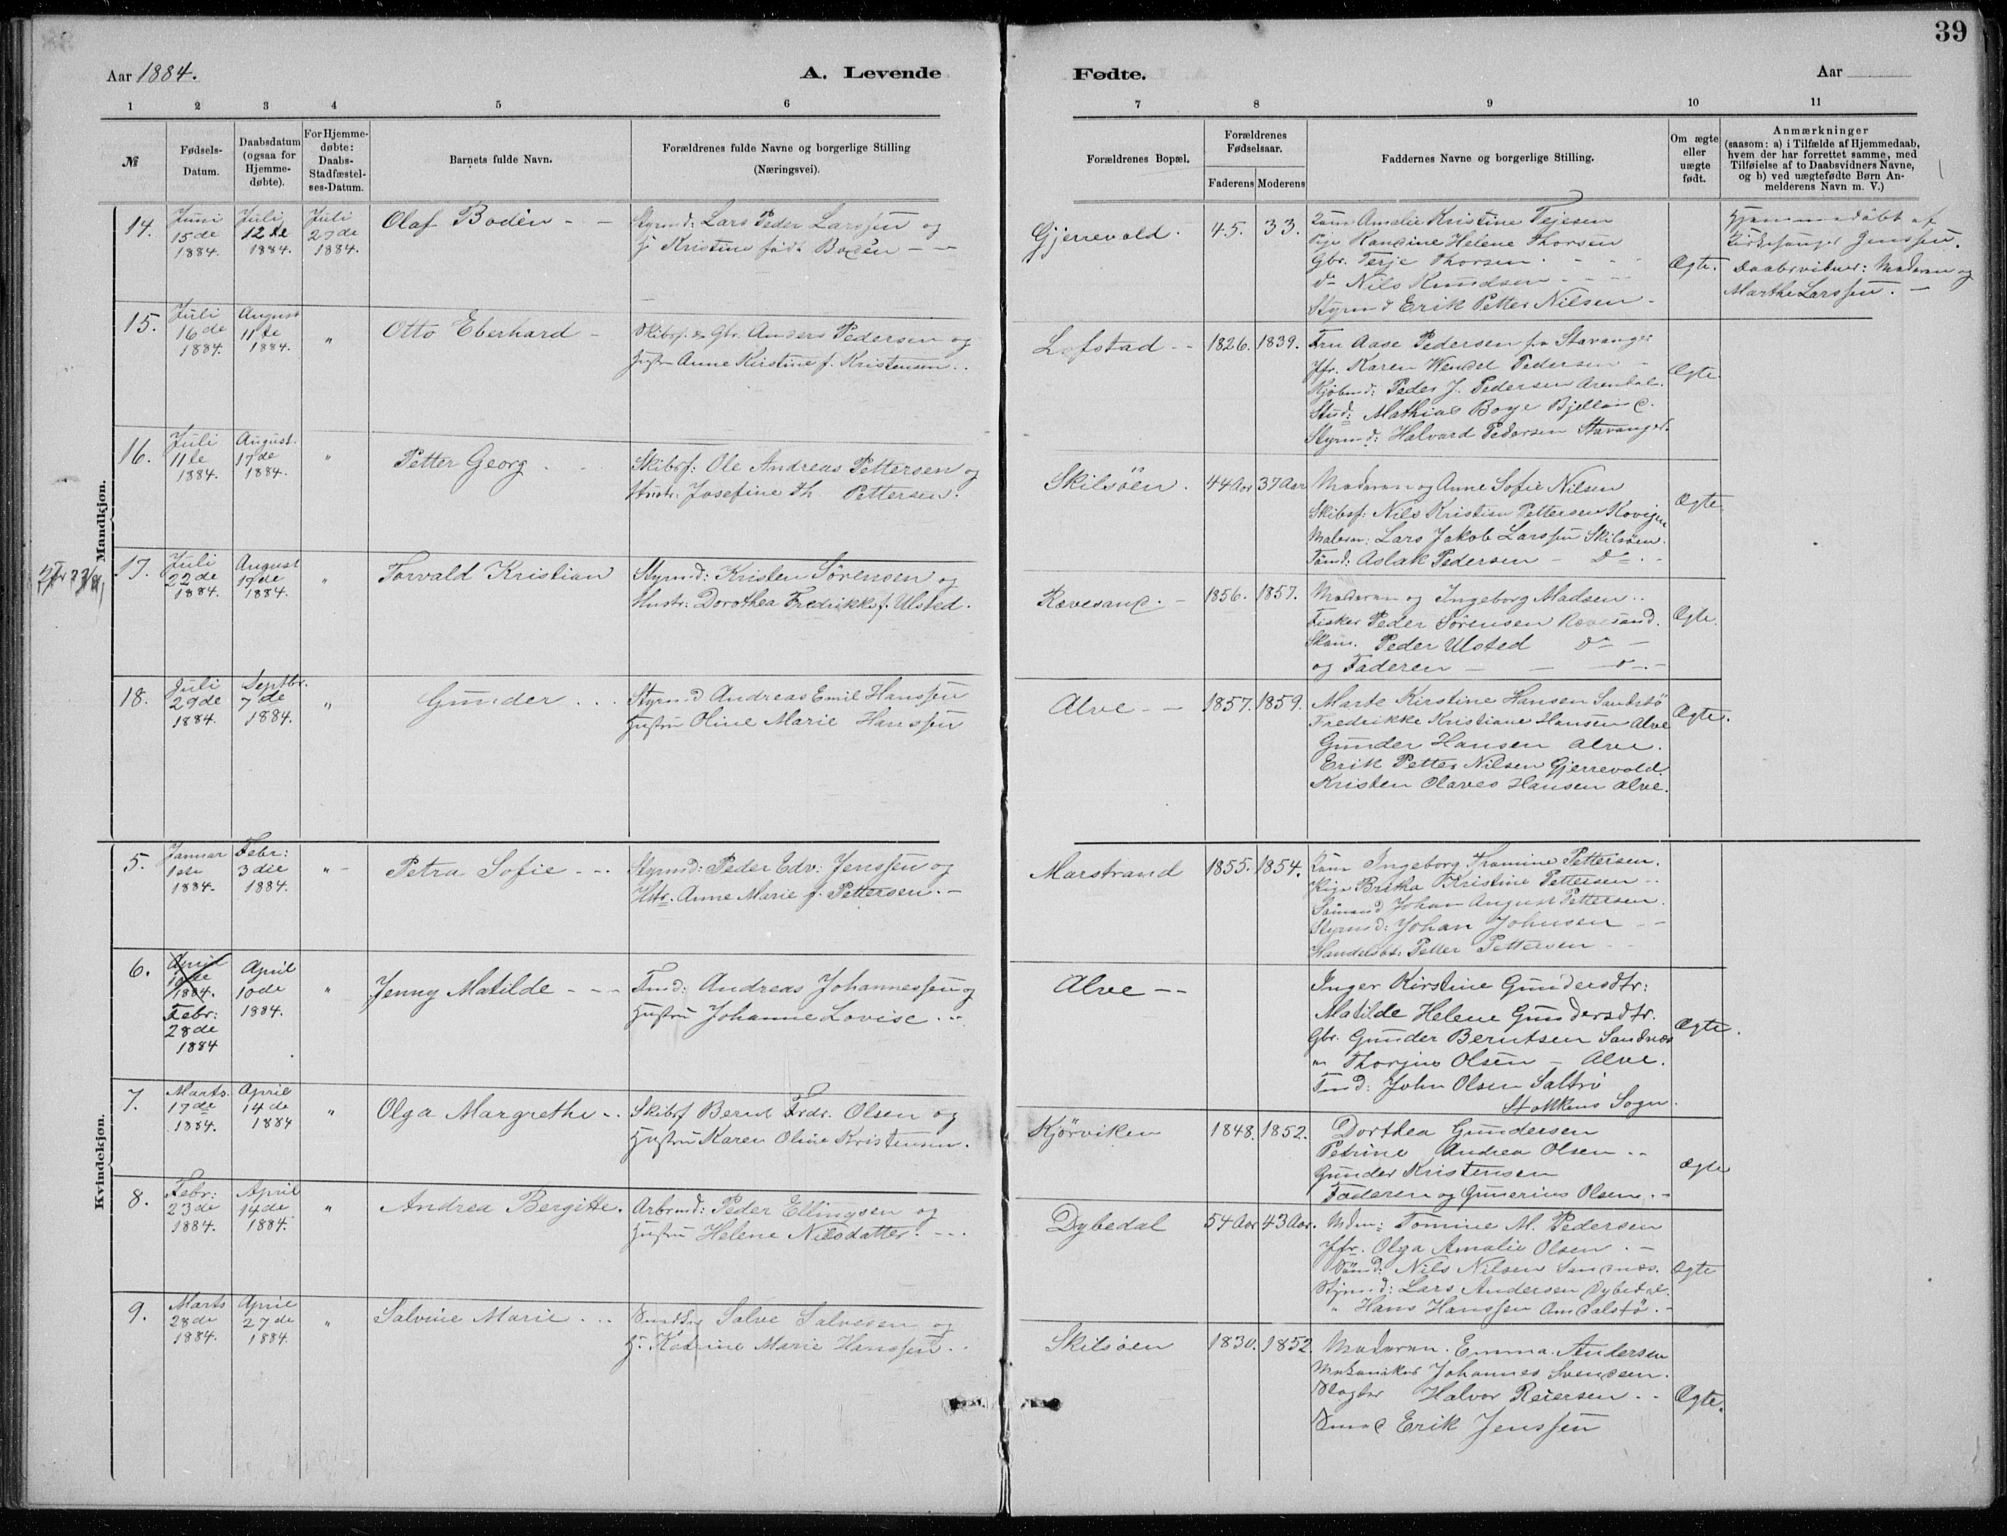 39
Aar 1884.
A. Levende
Fødte.
Aar
1 2 3 4 5 6 7 8 9 10 11
№
Fødsels-Datum.
Daabsdatum (ogsaa for Hjemme-døbte).
For Hjemme-døbte: Daabs-Stadfæstel-ses-Datum.
Barnets fulde Navn.
Forældrenes fulde Navne og borgerlige Stilling (Næringsvei).
Forældrenes Bopæl.
Forældrenes Fødselsaar.
Faderens Moderens
Faddernes Navne og borgerlige Stilling.
Om ægte eller uægte født.
Anmærkninger
(saasom: a) i Tilfælde af Hjemmedaab, hvem der har forrettet samme, med Tilføielse af to Daabsvidners Navne, og b) ved uægtefødte Børn An-melderens Navn m. V.)
Mandkjøn.
14.
Juni 15de 1884.
Juli 12te 1884.
Juli 27de 1884.
Olaf Bodén
Styrmd: Lars Peder Larssen og
H. Kristine født Bodén
Gjerrevold.
45. 33.
Amalie Kristine Tejesen
Pige Kandine Helene Thorsen
Gbr. Terje Thorsen
do Nils Knudsen
Styrmd Erik Petter Nilsen
Ægte.
Hjemmedöbt af
Kirkesanger Jenssen.
Daabsvidner: Moderen og
Marthe Larssen.
15.
Juli 16de 1884.
August 11te 1884.
"
Otto Eberhard
Skibsf. & Gbr. Anders Pedersen og
Hustru Anne Kirstine f. Kristensen.
Lofstad
1826. 1839.
Fru Aase Pedersen fra Stavanger
Jfr. Karen Wendel Pedersen
Kjöbmd: Peder J. Pedersen Arendal.
Stud: Mathias Boye Bjelland.
Styrmd: Halvard Pedersen Stavanger.
Ægte.
16.
Juli 11te 1884.
August. 17de 1884.
"
Petter Georg
Skibsf: Ole Andreas Pettersen og
Hustr. Josefine Th Pettersen.
Skilsöen.
44 Aar 37 Aar
Moderen og Anne Sofie Nilsen
Skibsf: Nils Kristian Pettersen
Lars Jakob Larssen Skilsöen.
Tömd: Aslak Pedersen - Do
Ægte
17.
Juli 22de 1884.
August 19de 1884.
"
Torvald Kristian
Styrmd: Kristen Sörensen og
Hustr: Dorothea Fredrikke f. Ulsted.
Rævesand.
1856. 1857.
Moderen og Ingeborg Madsen
Fisker Peder Sörensen Rævesand.
Peder Ulsted do
og Faderen
Ægte.
18.
Juli 29de 1884.
Septbr. 7de 1884.
"
Gunder
Styrmd Andreas Emil Hanssen
Hustru Oline Marie Hanssen
Alve
1857. 1859.
Marte Kirstine Hansen Sandstö
Fredrikke Kristiane Hansen Alve
Gunder Hansen Alve.
Erik Petter Nilsen Gjerrevold.
Kristen Olaves Hansen Alve.
Ægte.
Kvindekjøn.
5.
Januar 1ste 1884.
Febr: 3die 1884.
"
Petra Sofie
Styrmd: Peder Edv: Jenssen og
Hstr. Anne Marie f. Pettersen.
Marstrand
1855. 1854.
Ingeborg Tramine Pettersen.
Pige Britha Kristine Pettersen
Sömand Johan August Pettersen.
Styrmd: Johan Johnsen
Petter Pettersen
6.
April 10de 1884.
Febr: 28de 1884
April 10de 1884.
"
Jenny Matilde
Tmd: Andreas Johannessen og
Hustru Johanne Lovise
Alve
Inger Kirstine Gundersdtr:
Matilde Helene Gundersdtr.
Gbr. Gunder Berntsen Sandnæs
" Thorjus Olsen - Alve.
Tmd: John Olsen Saltrö
Stokkens Sogn.
Ægte.
7.
Marts 17de 1884.
April 14de 1884
"
Olga Margrethe
Skibsf Bernt Frdr. Olsen og
Hustru Karen Oline Kristensen.
Kjörviken
1848. 1852.
Dorthea Gundersen
Petrine Andrea Olsen
Gunder Kristensen
Faderen og Gunerius Olsen.
Ægte
8.
Febr: 23de 1884.
April 14de 1884.
"
Andrea Bergitte.
Arbmd: Peder Ellingsen og
Hustru Helene Nilsdatter.
Dybedal
54 Aar 43 Aar.
Mdm: Tomine M. Pedersen
Jfr. Olga Amalie Olsen
Sömd: Nils Nilsen Sandnæs.
Styrmd: Lars Andersen Dybedal.
" Hans Hanssen Amdalstö.
Ægte
9.
Marts 28de 1884.
April 27de 1884.
"
Salvine Marie
Salve Salvesen og
H. Katrine Marie Hanssen
Skilsöen
1830. 1852.
Moderen. Emma Andersen
Mekaniker Johannes Svendsen.
Slagter Halvor Reiersen
Smed Erik Jenssen
Ægte.